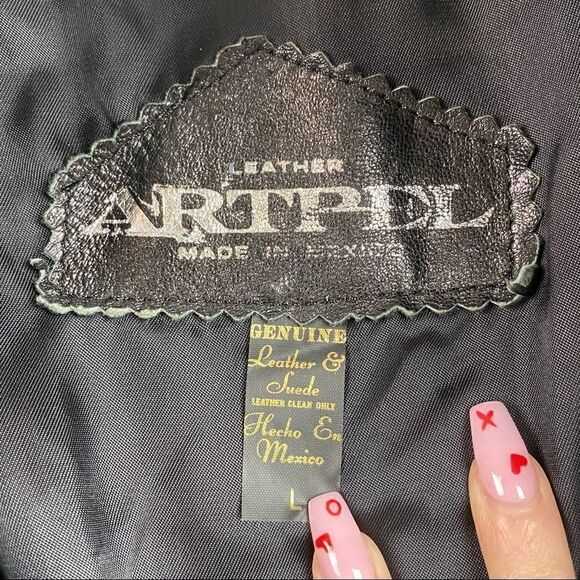 LEATHER
ARTPEL
MADE IN MEXICO
GENUINE
Leather &
Suede
LEATHER CLEAN ONLY
Hecho En
Mexico
L
X
O